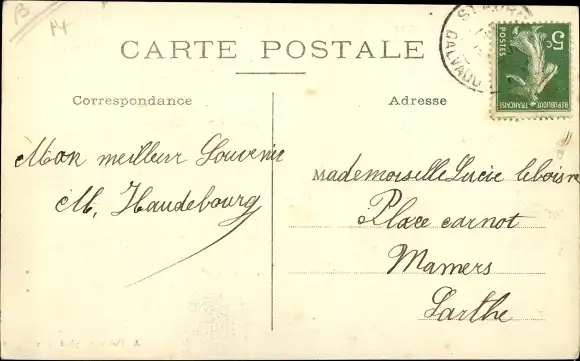 B
14
CARTE POSTALE
CALVADOS
5c
POSTES
REPUBLIQUE FRANÇAISE
Correspondance
Adresse
Mon meilleur Souvenir
M. Haudebourg
Mademoiselle Lucie leboisne
Place carnot
Mamers
Sarthe